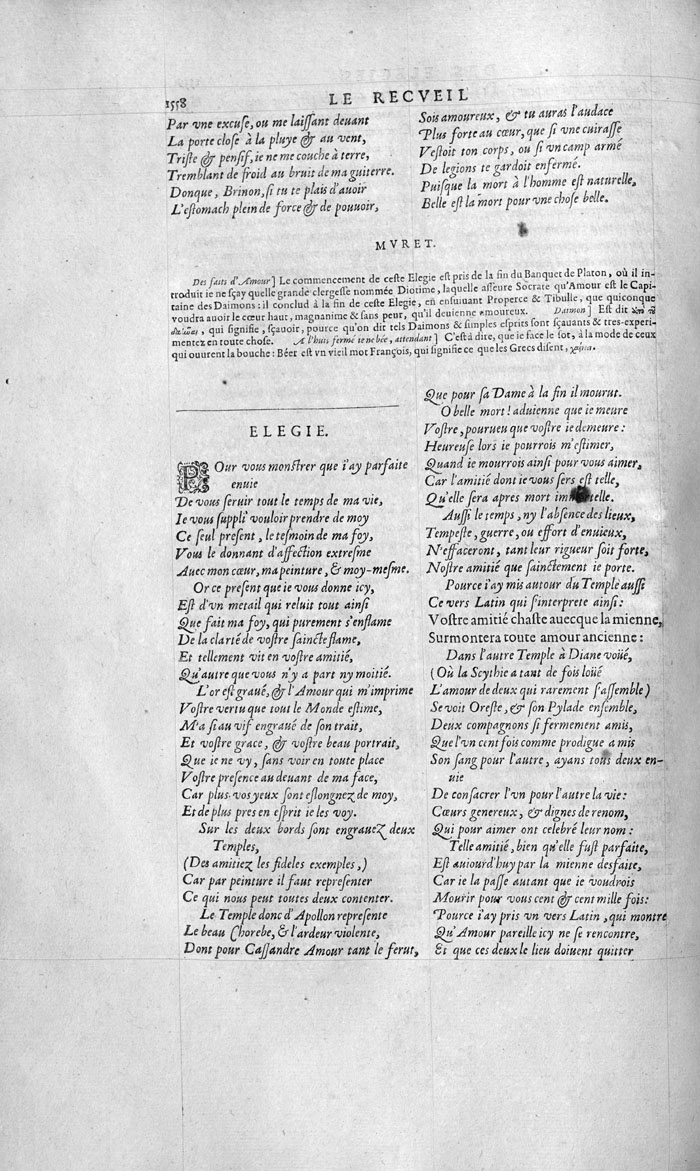 1558
LE RECVEIL
Par vne excuse, ou me laissant deuant
La porte close à la pluye & au vent,
Triste & pensif, ie ne me couche à terre,
Tremblant de froid au bruit de ma guiterre.
Donque, Brinon, si tu te plais d'auoir
L'estomach plein de force & de pouuoir,
Sois amoureux, & tu auras l'audace
Plus forte au cœur, que si vne cuirasse
Vestoit ton corps, ou si vn camp armé
De legions te gardoit enfermé.
Puisque la mort à l'homme est naturelle,
Belle est la mort pour vne chose belle.
MVRET.
Des faits d'Amour] Le commencement de ceste Elegie est pris de la fin du Banquet de Platon, où il in-
troduit ie ne sçay quelle grande clergesse nommée Diotime, laquelle asseure Socrate qu'Amour est le Capi-
taine des Daimons: il conclud à la fin de ceste Elegie, en ensuiuant Properce & Tibulle, que quiconque
voudra auoir le cœur haut, magnanime & sans peur, qu'il deuienne amoureux. Daimon] Est dit
, qui signifie, sçauoir, pource qu'on dit tels Daimons & simples esprits sont sçauants & tres-experi-
mentez en toute chose. A l'huis fermé ie ne bée, attendant] C'est à dire, que ie face le sot, à la mode de ceux
qui ouurent la bouche: Béer est vn vieil mot François, qui signifie ce que les Grecs disent,
ELEGIE.
POur vous monstrer que i'ay parfaite
enuie
De vous seruir tout le temps de ma vie,
Ie vous suppli' vouloir prendre de moy
Ce seul present, le tesmoin de ma foy,
Vous le donnant d'affection extresme
Auec mon cœur, ma peinture, & moy-mesme.
Or ce present que ie vous donne icy,
Est d'vn metail qui reluit tout ainsi
Que fait ma foy, qui purement s'enflame
De la clarté de vostre saincte flame,
Et tellement vit en vostre amitié,
Qu'autre que vous n'y a part ny moitié.
L'or est graué, & l'Amour qui m'imprime
Vostre vertu que tout le Monde estime,
M'a si au vif engraué de son trait,
Et vostre grace, & vostre beau portrait,
Que ie ne vy, sans voir en toute place
Vostre presence au deuant de ma face,
Car plus vos yeux sont eslongnez de moy,
Et de plus pres en esprit ie les voy.
Sur les deux bords sont engrauez deux
Temples,
(Des amitiez les fideles exemples,)
Car par peinture il faut representer
Ce qui nous peut toutes deux contenter.
Le Temple donc d'Apollon represente
Le beau Chorebe, & l'ardeur violente,
Dont pour Cassandre Amour tant le ferut,
Que pour sa Dame à la fin il mourut.
O belle mort! aduienne que ie meure
Vostre, pourueu que vostre ie demeure:
Heureuse lors ie pourrois m'estimer,
Quand ie mourrois ainsi pour vous aimer,
Car l'amitié dont ie vous sers est telle,
Qu'elle sera apres mort immortelle.
Aussi le temps, ny l'absence des lieux,
Tempeste, guerre, ou effort d'enuieux,
N'effaceront, tant leur rigueur soit forte,
Nostre amitié que sainctement ie porte.
Pource i'ay mis autour du Temple aussi
Ce vers Latin qui s'interprete ainsi:
Vostre amitié chaste auecque la mienne,
Surmontera toute amour ancienne:
Dans l'autre Temple à Diane voüé,
(Où la Scythie a tant de fois loüé
L'amour de deux qui rarement s'assemble)
Se voit Oreste, & son Pylade ensemble,
Deux compagnons si fermement amis,
Que l'vn cent fois comme prodigue a mis
Son sang pour l'autre, ayans tous deux en-
uie
De consacrer l'vn pour l'autre la vie:
Cœurs genereux, & dignes de renom,
Qui pour aimer ont celebré leur nom:
Telle amitié, bien qu'elle fust parfaite,
Est auiourd'huy par la mienne desfaite,
Car ie la passe autant que ie voudrois
Mourir pour vous cent & cent mille fois:
Pource i'ay pris vn vers Latin, qui montre
Qu'Amour pareille icy ne se rencontre,
Et que ces deux le lieu doiuent quitter